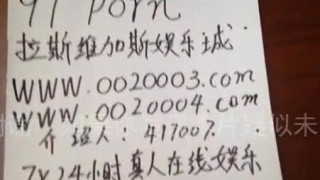 91 porn
拉斯维加斯娱乐城
WWW.0020003.com
WWW.0020004.com
介绍人:417007
7×24小时真人在线娱乐